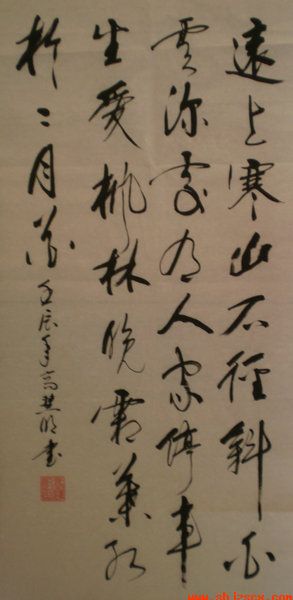 遠上寒山石徑斜白
雲深處有人家停車
坐愛楓林晚霜葉紅
於二月花
壬辰年高